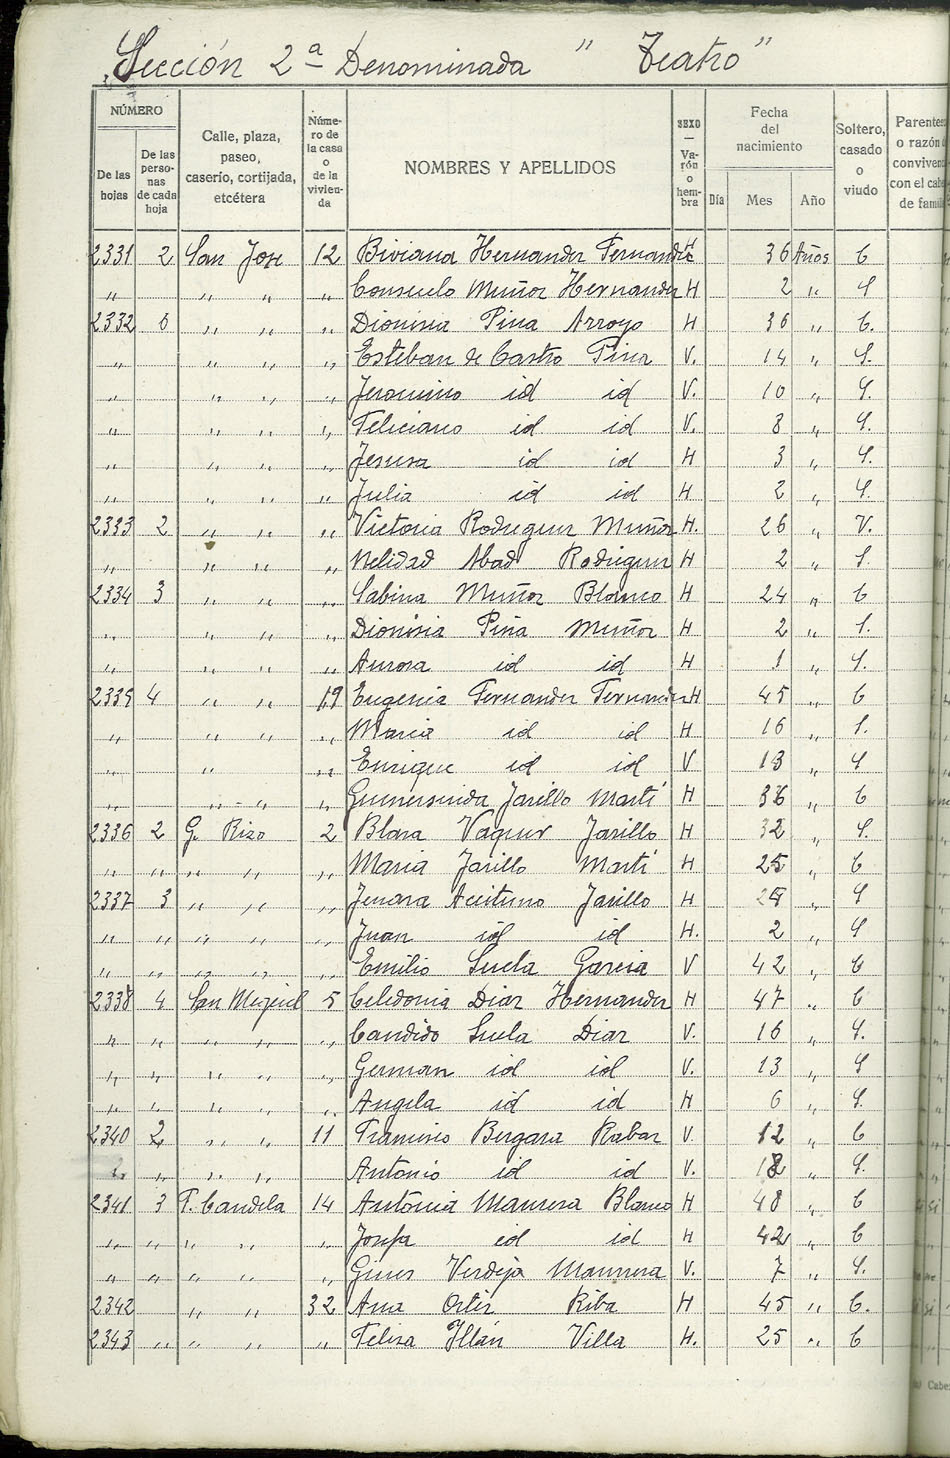 Sección 2ª Denominada " Teatro"
NÚMERO
De las hojas
De las personas de cada hoja
Calle, plaza, paseo, caserío, cortijada, etcétera
Número de la casa o de la vivienda
NOMBRES Y APELLIDOS
SEXO — Varón o hembra
Fecha del nacimiento
Día Mes Año
Soltero, casado o viudo
2331 2 San Jose 12 Biviana Hernandez Fernandez H 36 Años C
" " " " Consuelo Muñoz Hernandez H 2 " S
2332 6 " " " Dionisia Pina Arroyo H 36 " C.
" " " " Esteban de Castro Pina V. 14 " S.
" " " " Jeronimo id id V. 10 " S.
" " " " Feliciano id id V. 8 " S.
" " " " Jesusa id id H 3 " S.
" " " " Julia id id H 2 " S.
2333 2 " " " Victoria Rodriguez Muñoz H. 26 " V.
" " " " Nelidad Abad Rodriguez H 2 " S.
2334 3 " " " Sabina Muñoz Blanco H 24 " C
" " " " Dionisia Piña Muñoz H 2 " S.
" " " " Aurora id id H 1 " S.
2335 4 " " 19 Eugenia Fernandez Fernandez H 45 " C
" " " " Maria id id H 16 " S.
" " " Enrique id id V 13 " S
" " " " Jarillo Martí H 36 " C
2336 2 G. Rizo 2 Vaquer Jarillo H 32 " S.
" " " " " Maria Jarillo Martí H 25 " C
2337 3 " " " Jenara Aceituno Jarillo H " S
" " " " Juan id id H. 2 " S
" " " " " Emilio Garcia V 42 " C
2338 4 San Miguel 5 Celedonia Diaz Hernandez H 47 " C
" " " " " Candido Diaz V. 16 " S.
" " " " " German id id V. 13 " S
" " " " " Angela id id H 6 " S.
2340 2 " " 11 Bergara V. 12 " C
" " " " Antonio id id V. 18 " S.
2341 3 P. Candela 14 Antonia Blanco H 48 " C
" " " " " Josefa id id H 42 " C
" " " " " Gines Verdeja V. 7 " S.
2342 " " 32 Ana Ortiz Riba H 45 " C.
2343 " " " " Felisa Illán Villa H. 25 " C